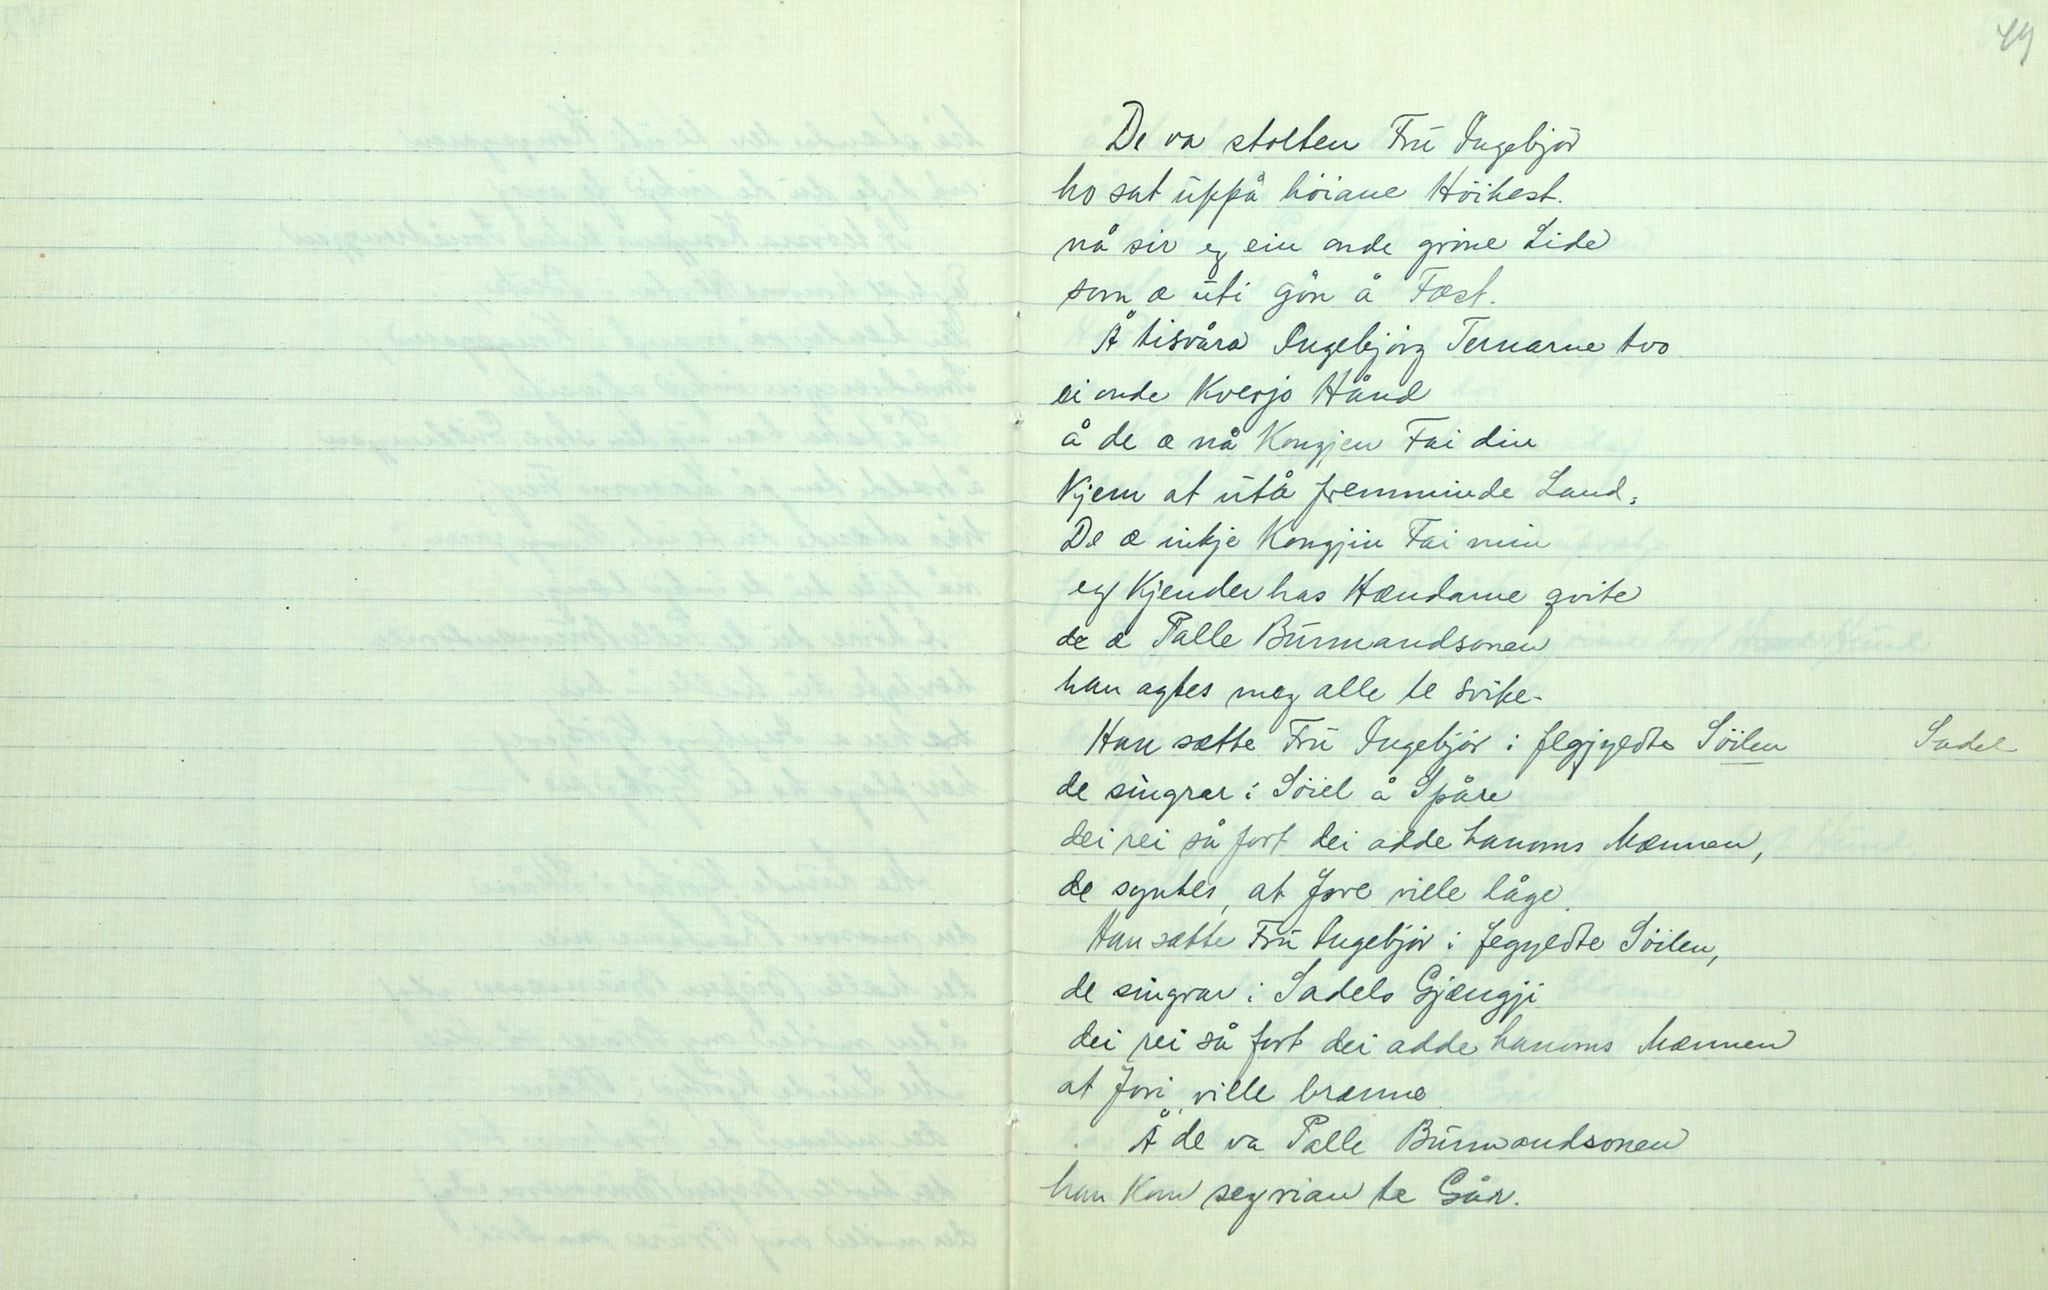 49
De va stolten Frü Ingebjör
ho sat üppå höiane Höihest.
nå sir eg ein onde grine Lide
som æ üti Gön å Fæst.
Å tisvåra Ingebjörg Ternarne tvo
ei onde Kverjo Hånd
å de æ nå Kongjen Fai din
Kjem at ütå fremminde Land,
De æ inkje Kongjin Fai min
eg Kjender has Hændarne qvite
de æ Palle Bürmandsonen
han agtes meg alle te svike.
Han sætte Frü Ingebjör i flegjyldte Söilen Sadel
de singrar i Söiel å Spåre
dei rei så fort dei adde hanoms Mænnen,
de syntes, at Jore ville låge.
Han sætte Frü Ingebjör i fegyldte Söilen,
de singrar i Sadels Gjængji
dei rei så fort dei adde hanoms Mænnen
at Jori ville brænne
Å de va Palle Bürmandsonen
han Kom seg rian te Går.